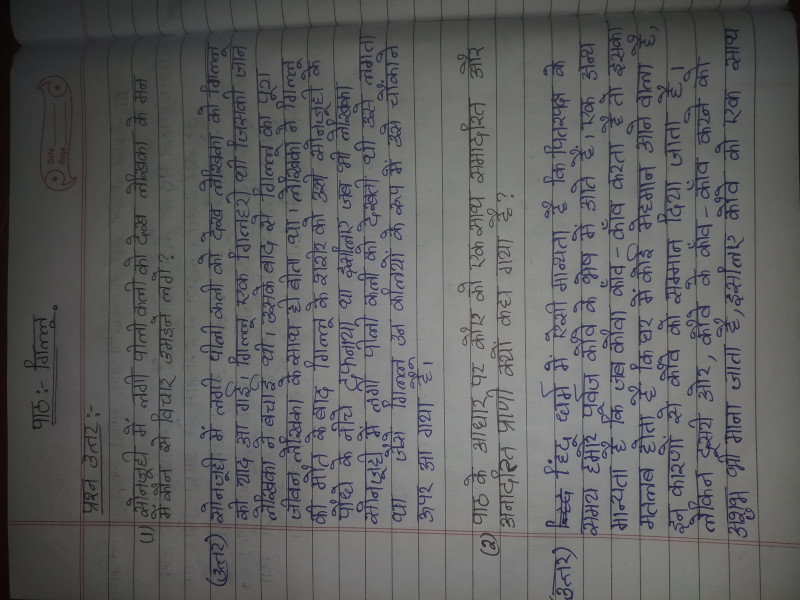 पाठ :- गिल्लू
प्रश्न उत्तर :-
(1) सोनजूही में लगी पीली कली को देख लेखिका के मन
में कौन से विचार उमड़ने लगे?
(उत्तर) सोनजूही में लगी पीली कली को देख लेखिका को गिल्लू
की याद आ गई। गिल्लू एक गिलहरी थी जिसकी जान
लेखिका ने बचाई थी। उसके बाद से गिल्लू का पूरा
जीवन लेखिका के साथ ही बीता था। लेखिका ने गिल्लू
की मौत के बाद गिल्लू के शरीर को उसी सोनजूही के
पौधे के नीचे दफनाया था इसीलिए जब भी लेखिका
सोनजूही में लगी पीली कली को देखती थी उसे लगता
था जैसे गिल्लू उन कलियों के रूप में उसे चौंकाने
ऊपर आ गया है।
(2) पाठ के आधार पर कौए को एक साथ समादरित और
अनादरित प्राणी क्यों कहा गया है?
(उत्तर) हिंदू धर्म में ऐसी मान्यता है कि पितरपक्ष के
समय हमारे पूर्वज कौवे के भेष में आते हैं। एक अन्य
मान्यता है कि जब कौवा काँव-काँव करता है तो इसका
मतलब होता है कि घर में कोई मेहमान आने वाला है,
इन कारणों से कौवे को सम्मान दिया जाता है।
लेकिन दूसरी ओर, कौवे के काँव-काँव करने को
अशुभ भी माना जाता है, इसीलिए कौवे को एक साथ